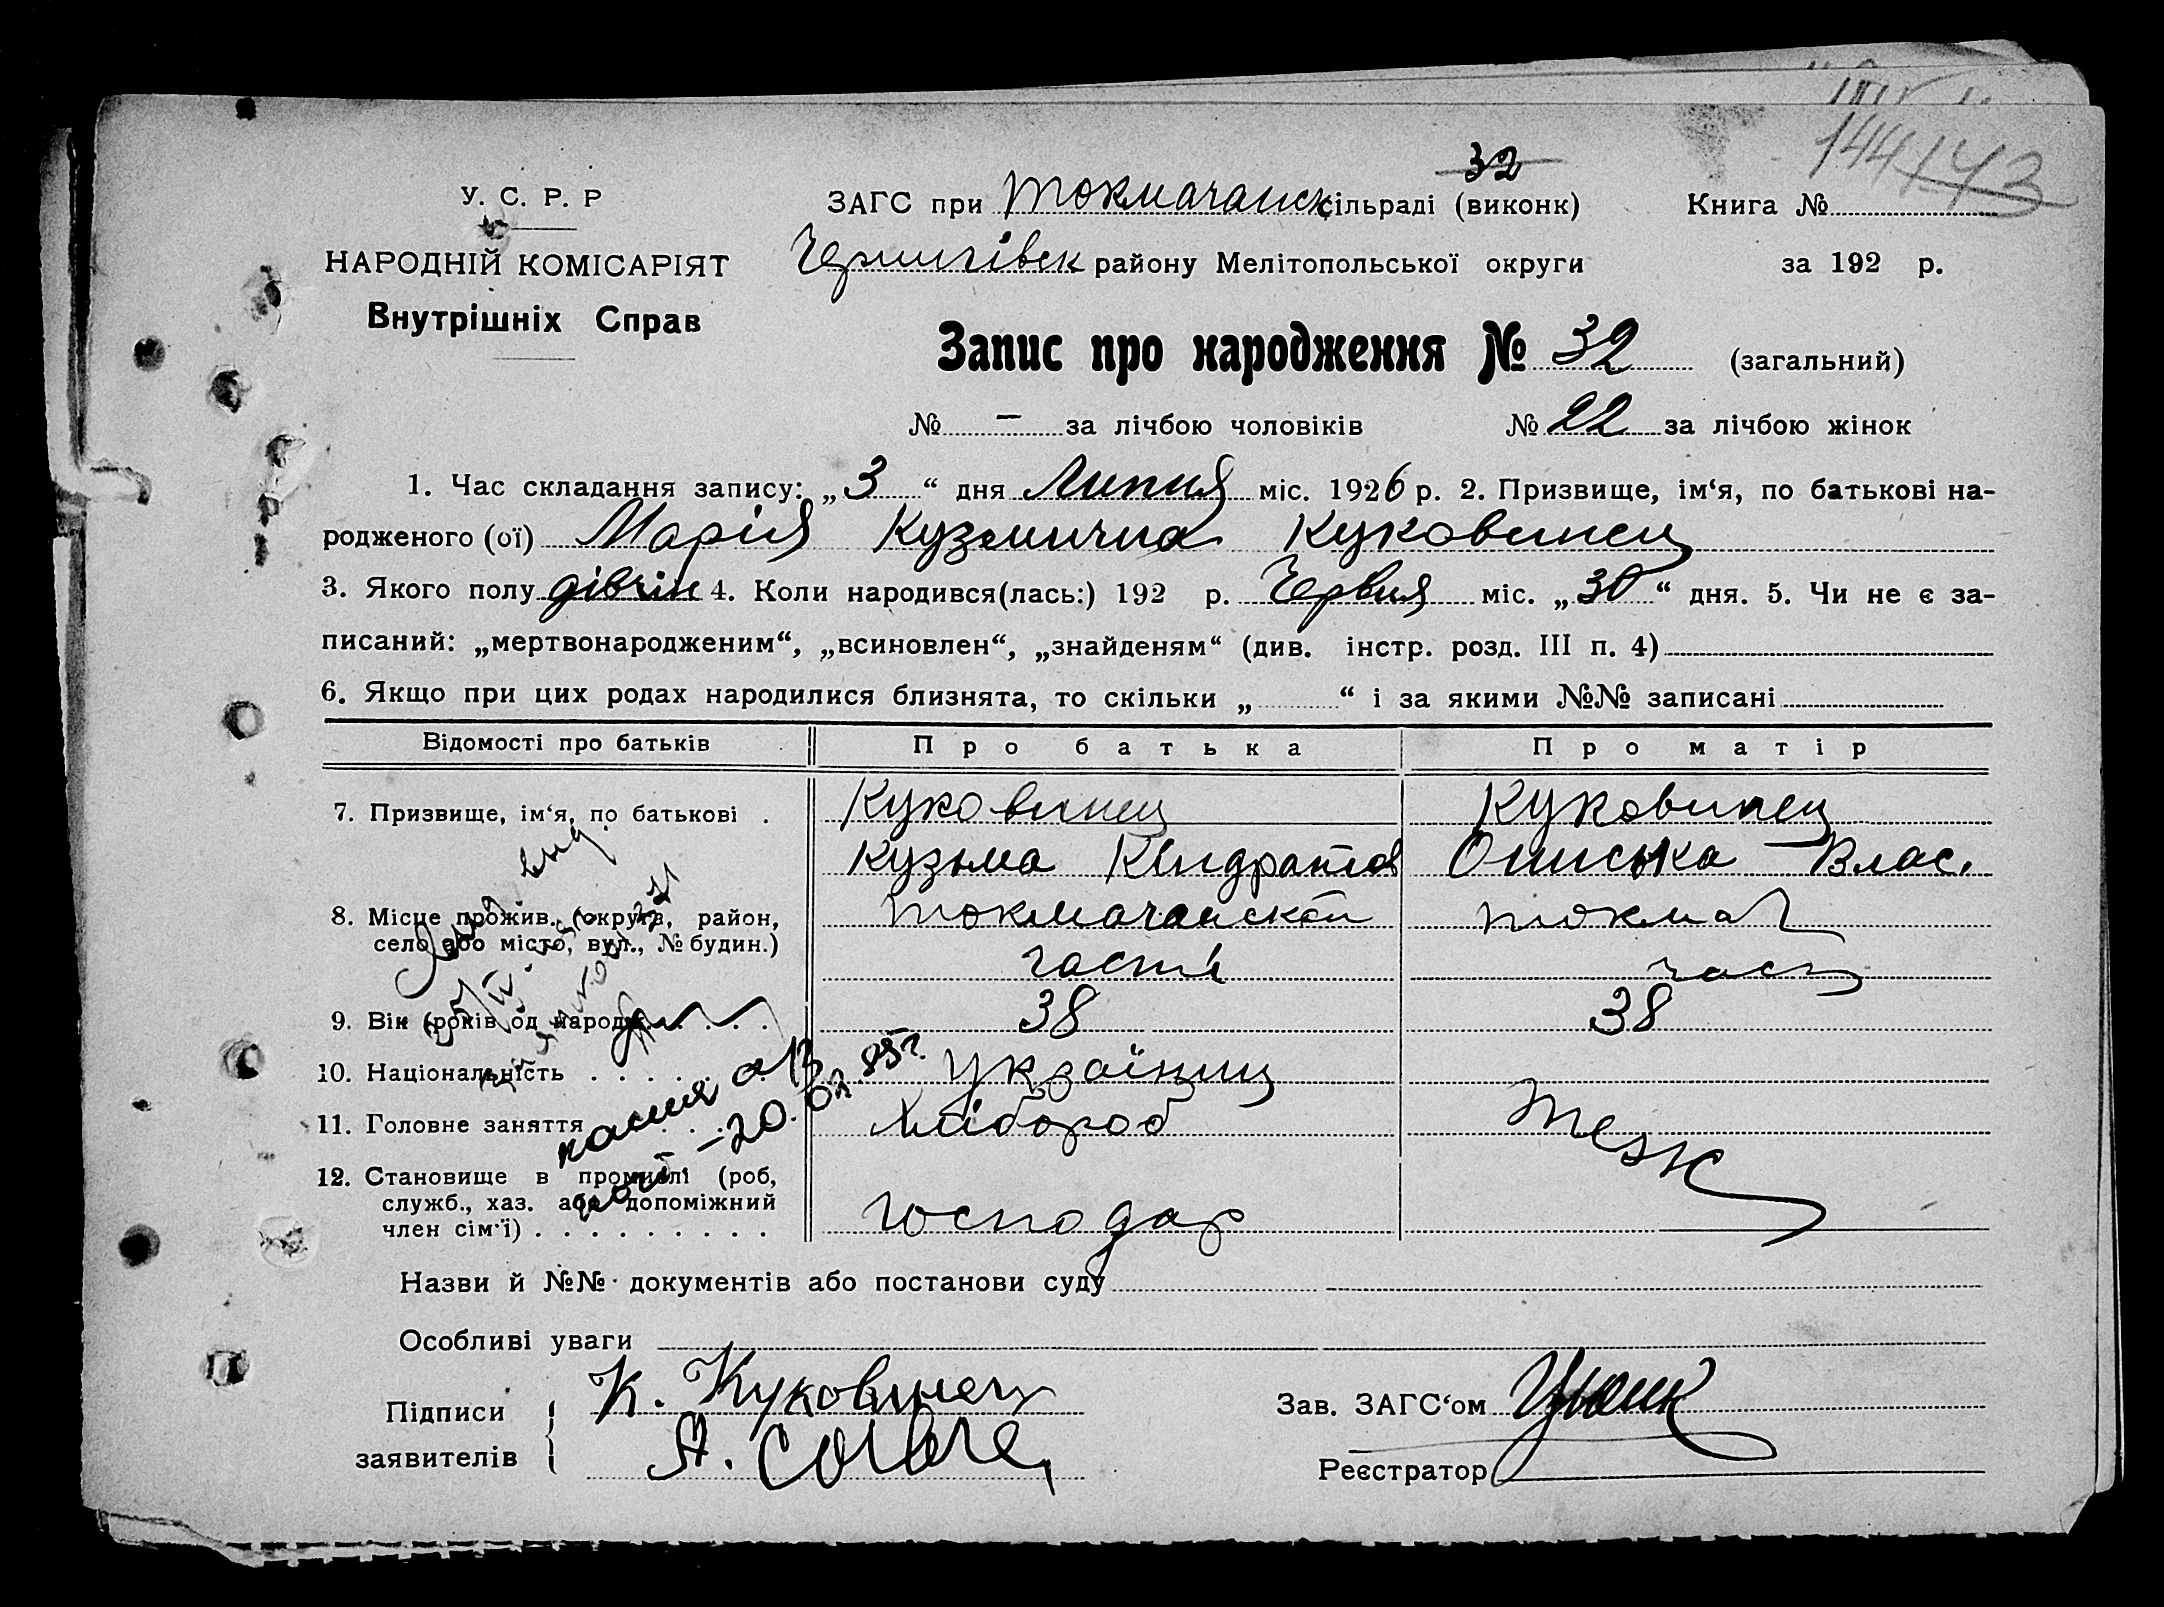 144 143
У. С. Р. Р
НАРОДНІЙ КОМІСАРІЯТ
Внутрішніх Справ
32
ЗАГС при Токмачанск сільраді (виконк) Книга №
Чернигівск району Мелітопольської округи за 192 р.
Запис про народження № 32 (загальний)
№ — за лічбою чоловіків № 22 за лічбою жінок
1. Час складання запису: „3“ дня Липня міс. 1926 р. 2. Призвище, ім‘я, по батькові на-
родженого (ої) Марія Кузмична Куковинец
3. Якого полу дівчін 4. Коли народився(лась:) 192 р. Червня міс. „30“ дня. 5. Чи не є за-
писаний: „мертвонародженим“, „всиновлен“, „знайденям“ (див. інстр. розд. III п. 4)
6. Якщо при цих родах народилися близнята, то скільки „ “ і за якими №№ записані
Відомості про батьків Про батька Про матір
7. Призвище, ім‘я, по батькові . Куковинец Куковинец
Кузьма Кіндратов Ониська Влас.
8. Місце прожив. (округа, район, Токмачанской Токмач
село або місто, вул., № будин.) части част
9. Вік (років од народж. 38 38
10. Національність українец
11. Головне заняття хлібороб
теж
12. Становище в промислі (роб,
служб., хаз. або допоміжний
член сім‘ї) господар
20.02.85г.
Назви й №№ документів або постанови суду
Особливі уваги
Підписи К. Куковинец Зав. ЗАГС‘ом
заявителів А.
Реєстратор